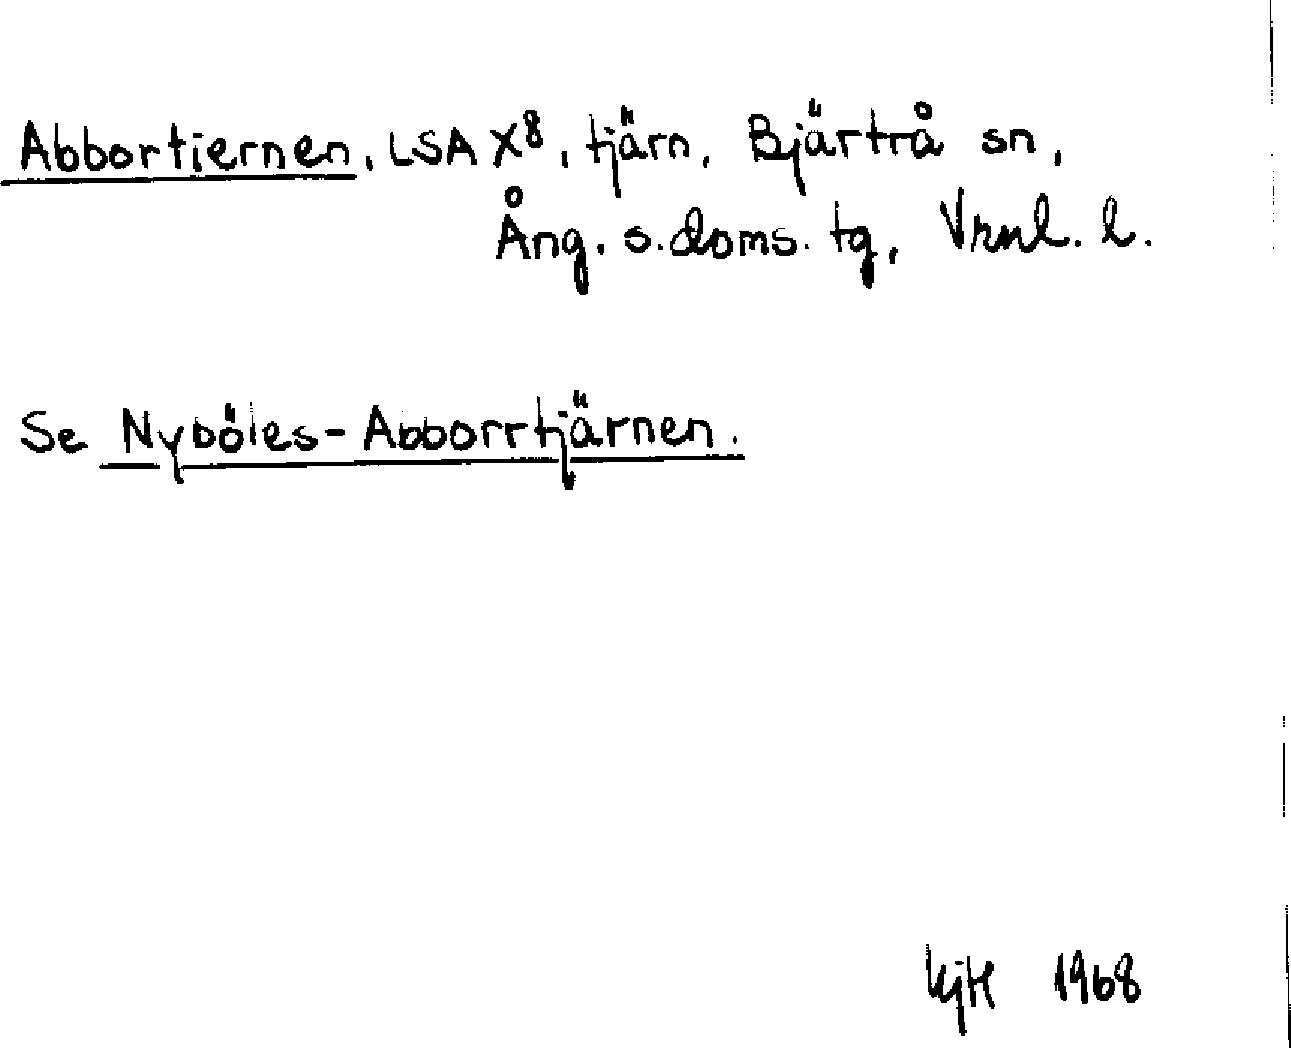 Abbortiernen, LSA X8, tjärn, Bjärtrå sn,
Ång. s. doms. tg, Vrnl. l.
Se Nyböles-Abborrtjärnen.
1968